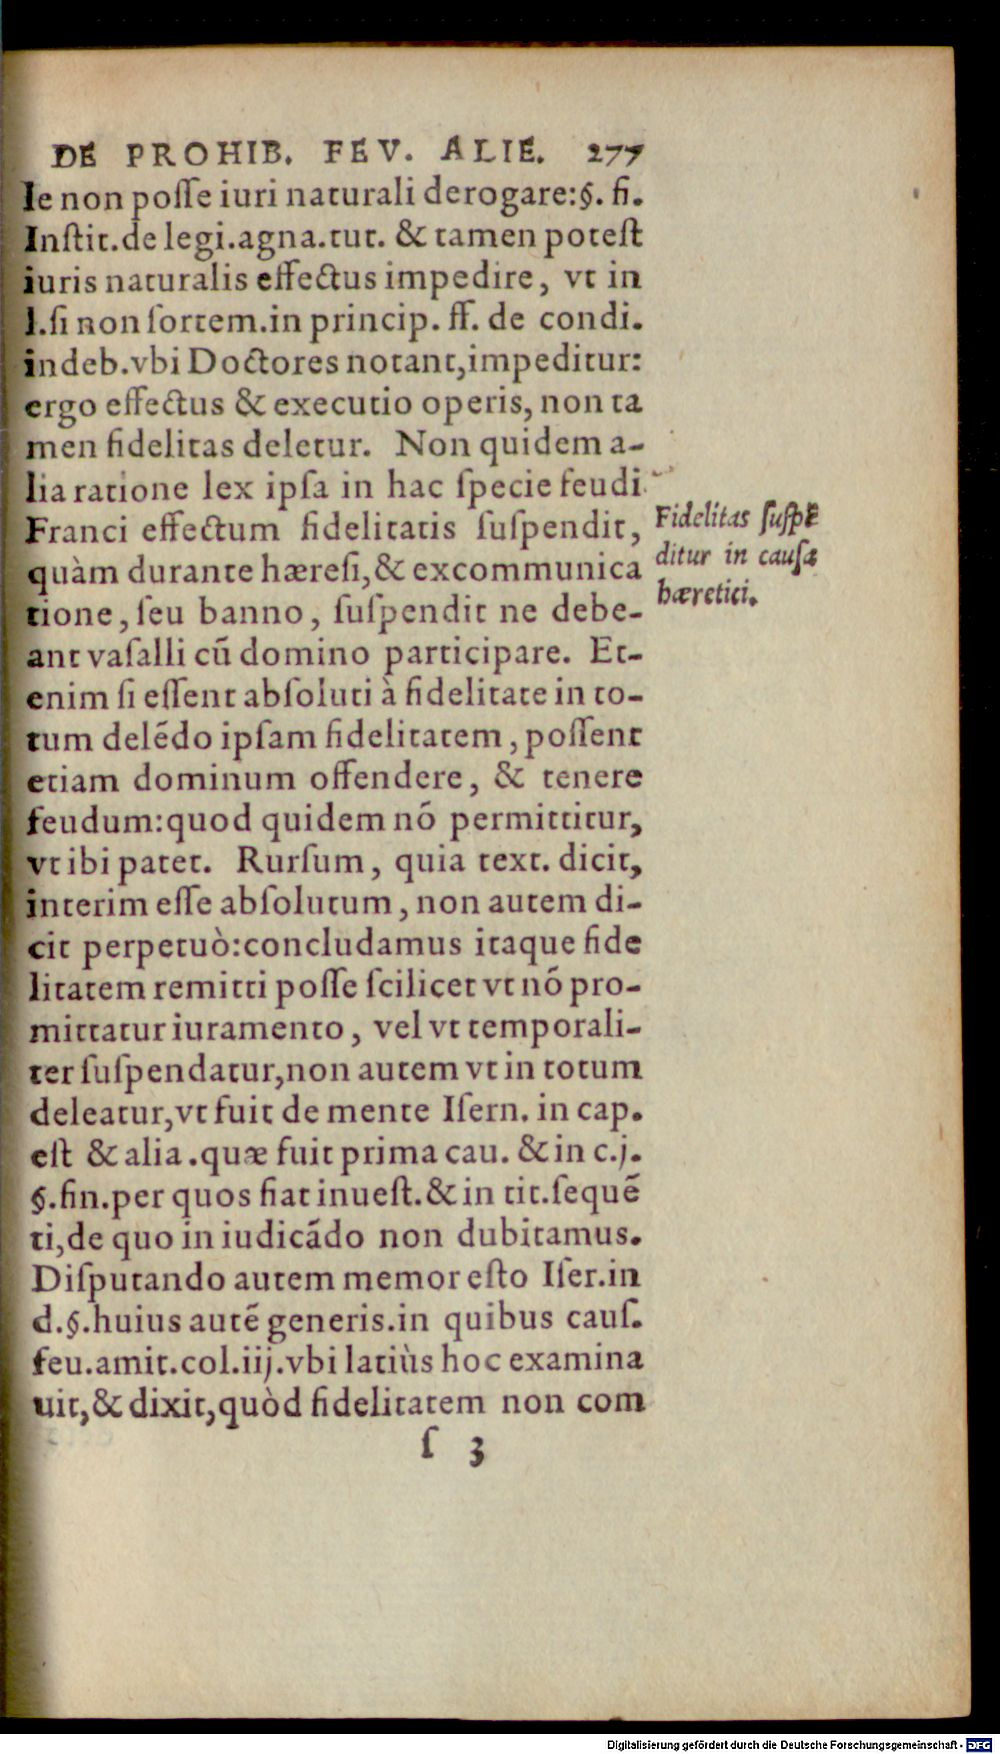 DE PROHIB. FEV. ALIE. 277
le non poſſe iuri naturali derogare:§. fi.
Inſtit.de legi.agna.tut. & tamen poteſt
iuris naturalis effectus impedire, vt in
l.ſi non ſortem.in princip. ff. de condi.
indeb.vbi Doctores notant,impeditur:
ergo effectus & executio operis, non ta
men fidelitas deletur. Non quidem a-
lia ratione lex ipſa in hac ſpecie feudi
Franci effectum fidelitatis ſuſpendit,
quàm durante hæreſi,& excommunica
tione, ſeu banno, ſuſpendit ne debe-
ant vaſalli cū domino participare. Et-
enim ſi eſſent abſoluti à fidelitate in to-
tum delēdo ipſam fidelitatem, poſſent
etiam dominum offendere, & tenere
feudum:quod quidem nō permittitur,
vt ibi patet. Rurſum, quia text. dicit,
interim eſſe abſolutum, non autem di-
cit perpetuò:concludamus itaque fide
litatem remitti poſſe ſcilicet vt nō pro-
mittatur iuramento, vel vt temporali-
ter ſuſpendatur,non autem vt in totum
deleatur,vt fuit de mente Iſern. in cap.
eſt & alia .quæ fuit prima cau. & in c.j.
§.fin.per quos fiat inueſt.& in tit.ſequē
ti,de quo in iudicādo non dubitamus.
Diſputando autem memor eſto Iſer.in
d.§.huius autē generis.in quibus cauſ.
feu.amit.col.iij.vbi latiùs hoc examina
uit,& dixit,quòd fidelitatem non com
ſ 3
Fidelitas ſuſpē
ditur in cauſa
hæretici.
Digitalisierung gefördert durch die Deutsche Forschungsgemeinschaft - DFG